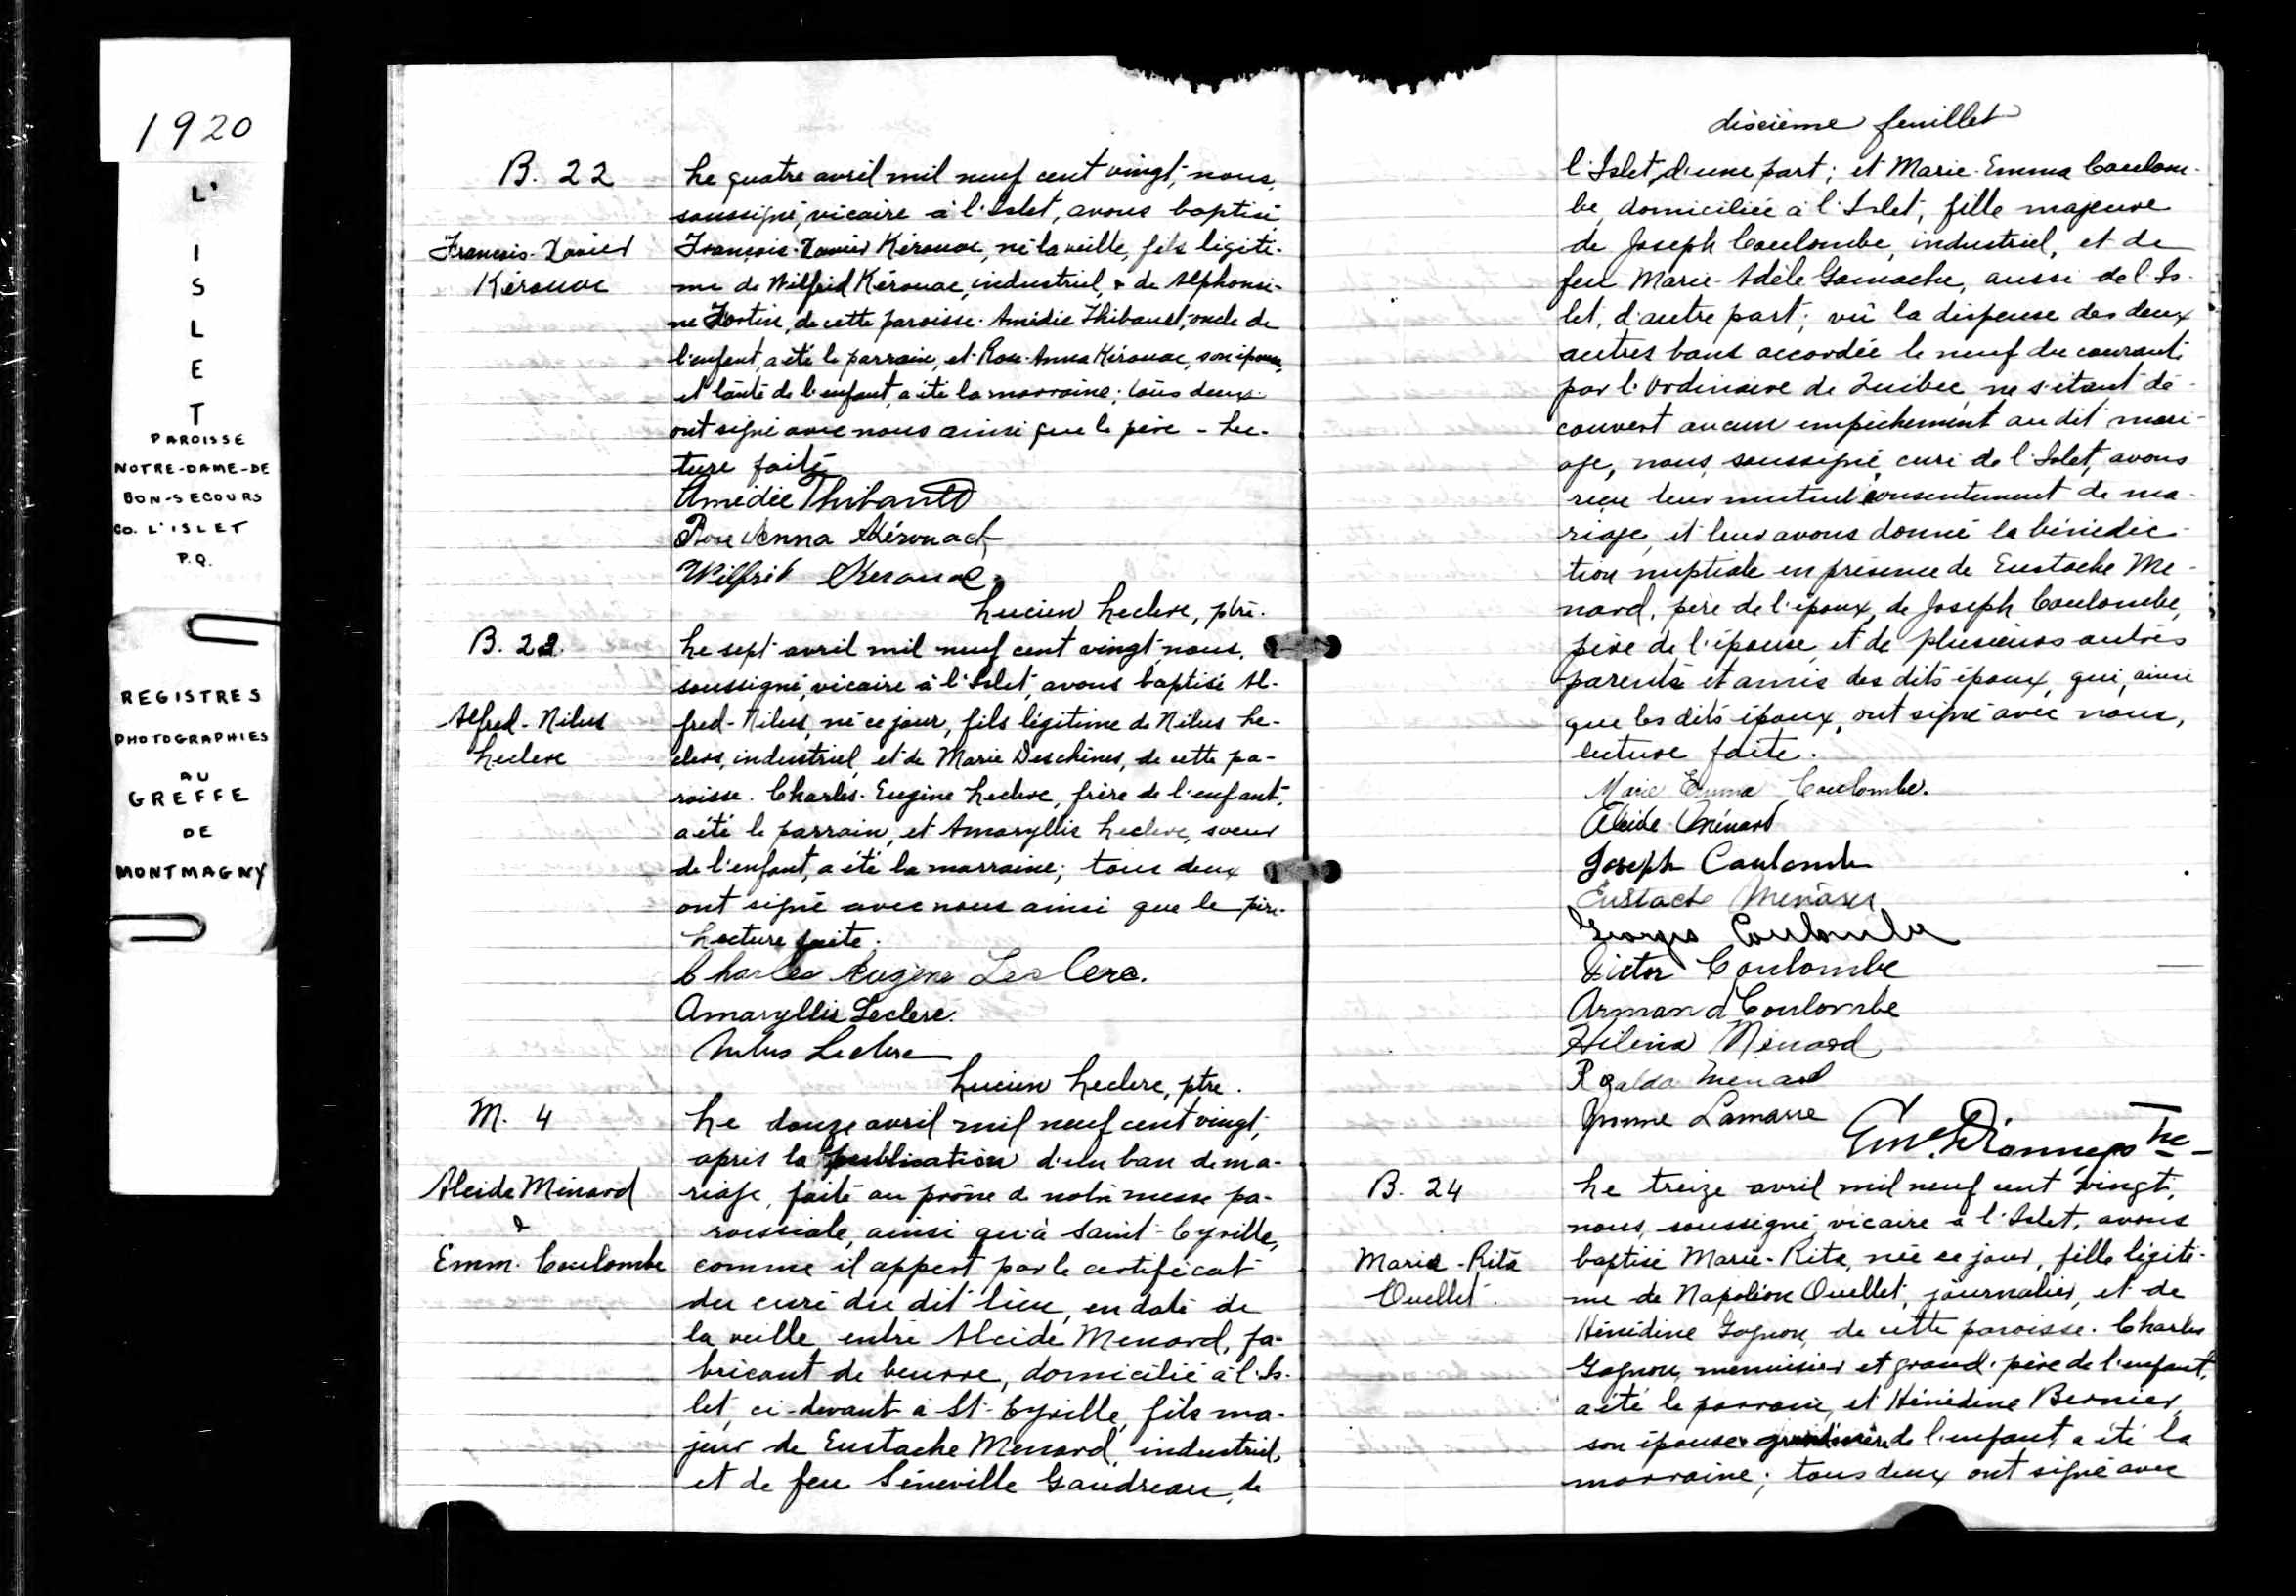 1920
L'
I
S
L
E
T
PAROISSE
NOTRE-DAME-DE
BON-SECOURS
CO. L'ISLET
P.Q.
REGISTRES
PHOTOGRAPHIES
AU
GREFFE
DE
MONTMAGNY
B. 22
François-Xavier
Kérouac
Le quatre avril mil neuf cent vingt, nous,
soussigné, vicaire à l'Islet, avons baptisé
François-Xavier Kérouac, né la veille, fils légiti-
me de Wilfrid Kérouac, industriel, & de Alphonsi-
ne Fortin, de cette paroisse. Amédée Thibault, oncle de
l'enfant, a été le parrain, et Rose-Anna Kérouac, son épouse,
et tante de l'enfant, a été la marraine; tous deux
ont signé avec nous ainsi que le père - Lec-
ture faite
Amédée Thibault
Rose Anna Kérouack
Wilfrid Kerouac
Lucien Leclerc, ptre.
B. 23.
Alfred-Nilus
Leclerc
Le sept avril mil neuf cent vingt, nous,
soussigné, vicaire à l'Islet, avons baptisé Al-
fred-Nilus, né ce jour, fils légitime de Nilus Le-
clerc, industriel, et de Marie Deschênes, de cette pa-
roisse. Charles-Eugène Leclerc, frère de l'enfant,
a été le parrain, et Amaryllis Leclerc, soeur
de l'enfant, a été la marraine; tous deux
ont signé avec nous ainsi que le père.
Lecture faite.
Charles Eugène LesClerc.
Amaryllis Leclerc.
Nilus Leclerc
Lucien Leclerc, ptre.
M. 4
Alcide Ménard
&
Emm. Coulombe
Le douze avril mil neuf cent vingt,
après la publication d'un ban de ma-
riage, faite au prône de notre messe pa-
roissiale, ainsi qu'à Saint-Cyrille,
comme il appert par le certificat
du curé du dit lieu, en date de
la veille, entre Alcide Menard, fa-
bricant de beurre, domicilié à l'Is-
let, ci-devant à St-Cyrille, fils ma-
jeur de Eustache Menard, industriel,
et de feu Séneville Gaudreau, de
dixième feuillet
l'Islet, d'une part; et Marie-Emma Coulom-
be, domiciliée à l'Islet, fille majeure
de Joseph Coulombe, industriel, et de
feu Marie-Adèle Gamache, aussi de l'Is-
let, d'autre part; vû la dispense des deux
autres bans accordée le neuf du courant
par l'Ordinaire de Québec, ne s'étant dé-
couvert aucun empêchement au dit mari-
age, nous, soussigné, curé de l'Islet, avons
reçu leur mutuel consentement de ma-
riage, et leur avons donné la bénédic-
tion nuptiale en présence de Eustache Me-
nard, père de l'époux, de Joseph Coulombe,
père de l'épouse, et de plusieurs autres
parents et amis des dits époux, qui, ainsi
que les dits époux, ont signé avec nous,
lecture faite.
Marie Emma Coulombe.
Alcide Ménard
Joseph Coulombe
Eustache Menard
Georges Coulombe
Victor Coulombe
Armand Coulombe
Hiléna Ménard
Menard
Yvonne Lamarre
Em. Dionne ptre
B. 24
Marie-Rita
Ouellet.
Le treize avril mil neuf cent vingt,
nous, soussigné, vicaire à l'Islet, avons
baptisé Marie-Rita, née ce jour, fille légiti-
me de Napoléon Ouellet, journalier, et de
Hénédine Gagnon, de cette paroisse. Charles
Gagnon, menuisier et grand-père de l'enfant,
a été le parrain, et Hénédine Bernier,
son épouse & grand'mère de l'enfant, a été la
marraine; tous deux ont signé avec